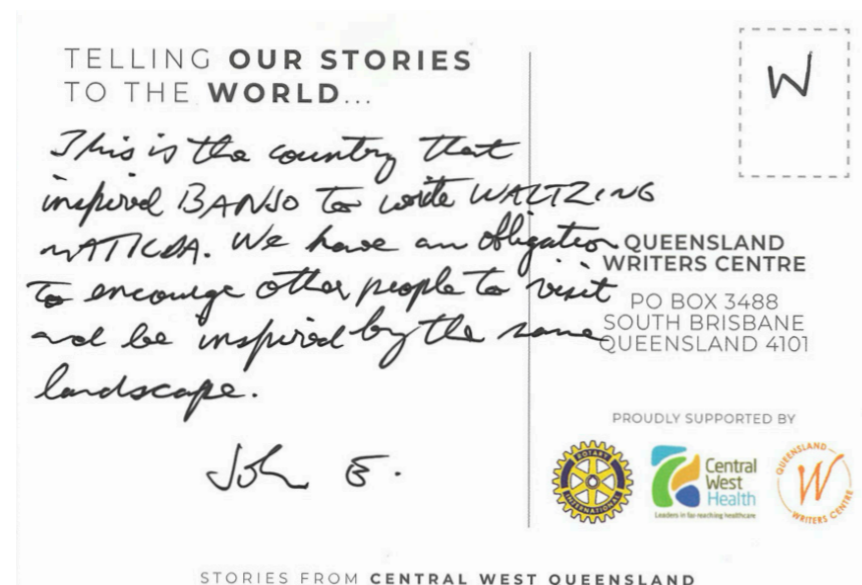 TELLING OUR STORIES
TO THE WORLD...
W
This is the country that
inspired BANJO to write WALTZING
MATILDA. We have an obligation
to encourage other people to visit
and be inspired by the same
landscape.
John E.
QUEENSLAND
WRITERS CENTRE
PO BOX 3488
SOUTH BRISBANE
QUEENSLAND 4101
PROUDLY SUPPORTED BY
ROTARY
INTERNATIONAL
Central
West
Health
Leaders in far-reaching healthcare
QUEENSLAND
W
WRITERS CENTRE
STORIES FROM CENTRAL WEST QUEENSLAND